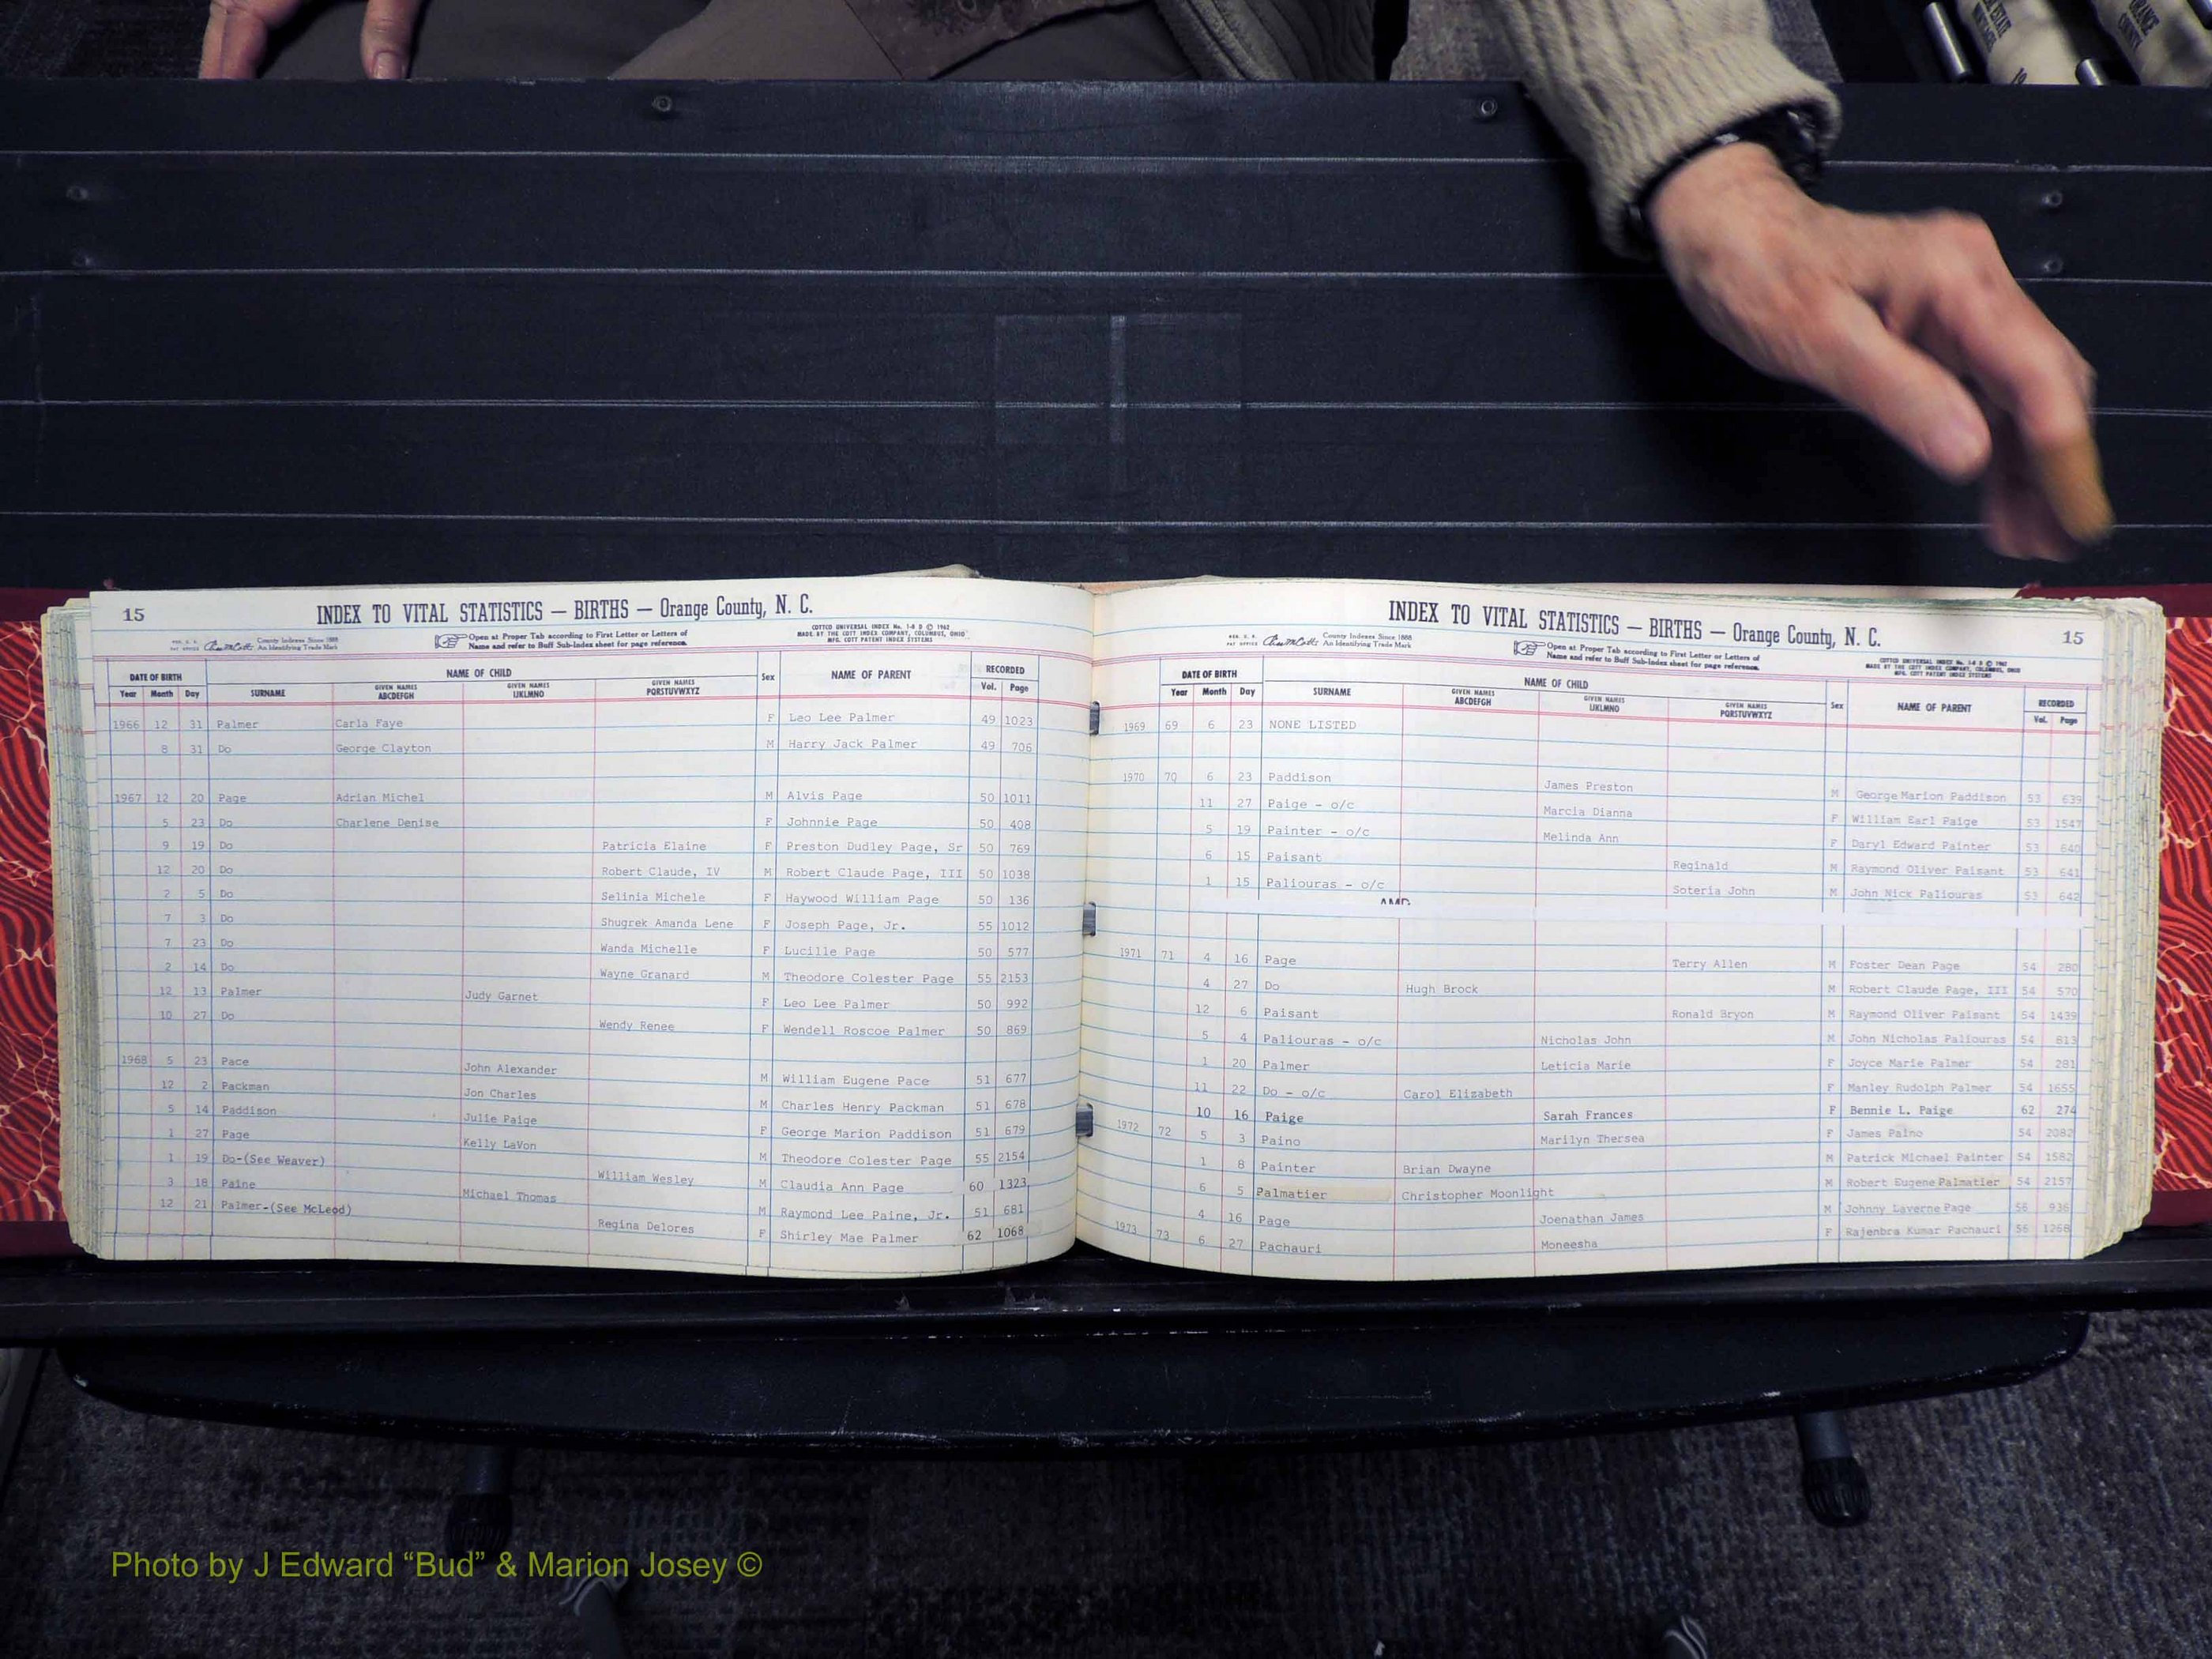 15
INDEX TO VITAL STATISTICS — BIRTHS — Orange County, N. C.
County Indexes Since 1888
An Identifying Trade Mark
Open at Proper Tab according to First Letter or Letters of
Name and refer to Buff Sub-Index sheet for page reference.
COTTCO UNIVERSAL INDEX No. 1-8 D © 1962
MADE BY THE COTT INDEX COMPANY, COLUMBUS, OHIO
MFG. COTT PATENT INDEX SYSTEMS
DATE OF BIRTH NAME OF CHILD Sex NAME OF PARENT RECORDED
Year Month Day SURNAME GIVEN NAMES ABCDEFGH GIVEN NAMES IJKLMNO GIVEN NAMES PQRSTUVWXYZ Vol. Page
1966 12 31 Palmer Carla Faye F Leo Lee Palmer 49 1023
8 31 Do George Clayton M Harry Jack Palmer 49 706
1967 12 20 Page Adrian Michel M Alvis Page 50 1011
5 23 Do Charlene Denise F Johnnie Page 50 408
9 19 Do Patricia Elaine F Preston Dudley Page, Sr 50 769
12 20 Do Robert Claude, IV M Robert Claude Page, III 50 1038
2 5 Do Selinia Michele F Haywood William Page 50 136
7 3 Do Shugrek Amanda Lene F Joseph Page, Jr. 55 1012
7 23 Do Wanda Michelle F Lucille Page 50 577
2 14 Do Wayne Granard M Theodore Colester Page 55 2153
12 13 Palmer Judy Garnet F Leo Lee Palmer 50 992
10 27 Do Wendy Renee F Wendell Roscoe Palmer 50 869
1968 5 23 Pace John Alexander M William Eugene Pace 51 677
12 2 Packman Jon Charles M Charles Henry Packman 51 678
5 14 Paddison Julie Paige F George Marion Paddison 51 679
1 27 Page Kelly LaVon M Theodore Colester Page 55 2154
1 19 Do-(See Weaver) William Wesley M Claudia Ann Page 60 1323
3 18 Paine Michael Thomas M Raymond Lee Paine, Jr. 51 681
12 21 Palmer-(See McLeod) Regina Delores F Shirley Mae Palmer 62 1068
INDEX TO VITAL STATISTICS — BIRTHS — Orange County, N. C.
15
County Indexes Since 1888
An Identifying Trade Mark
Open at Proper Tab according to First Letter or Letters of
Name and refer to Buff Sub-Index sheet for page reference.
COTTCO UNIVERSAL INDEX No. 1-8 D © 1962
MADE BY THE COTT INDEX COMPANY, COLUMBUS, OHIO
MFG. COTT PATENT INDEX SYSTEMS
DATE OF BIRTH NAME OF CHILD Sex NAME OF PARENT RECORDED
Year Month Day SURNAME GIVEN NAMES ABCDEFGH GIVEN NAMES IJKLMNO GIVEN NAMES PQRSTUVWXYZ Vol. Page
1969 69 6 23 NONE LISTED
1970 70 6 23 Paddison James Preston M George Marion Paddison 53 639
11 27 Paige - o/c Marcia Dianna F William Earl Paige 53 1547
5 19 Painter - o/c Melinda Ann F Daryl Edward Painter 53 640
6 15 Paisant Reginald M Raymond Oliver Paisant 53 641
1 15 Paliouras - o/c Soteria John M John Nick Paliouras 53 642
1971 71 4 16 Page Terry Allen M Foster Dean Page 54 280
4 27 Do Hugh Brock M Robert Claude Page, III 54 570
12 6 Paisant Ronald Bryon M Raymond Oliver Paisant 54 1439
5 4 Paliouras - o/c Nicholas John M John Nicholas Paliouras 54 813
1 20 Palmer Leticia Marie F Joyce Marie Palmer 54 281
11 22 Do - o/c Carol Elizabeth F Manley Rudolph Palmer 54 1655
10 16 Paige Sarah Frances F Bennie L. Paige 62 274
1972 72 5 3 Paino Marilyn Thersea F James Paino 54 2082
1 8 Painter Brian Dwayne M Patrick Michael Painter 54 1582
6 5 Palmatier Christopher Moonlight M Robert Eugene Palmatier 54 2157
4 16 Page Joenathan James M Johnny Laverne Page 56 936
1973 73 6 27 Pachauri Moneesha F Rajenbra Kumar Pachauri 56 1268
Photo by J Edward “Bud” & Marion Josey ©